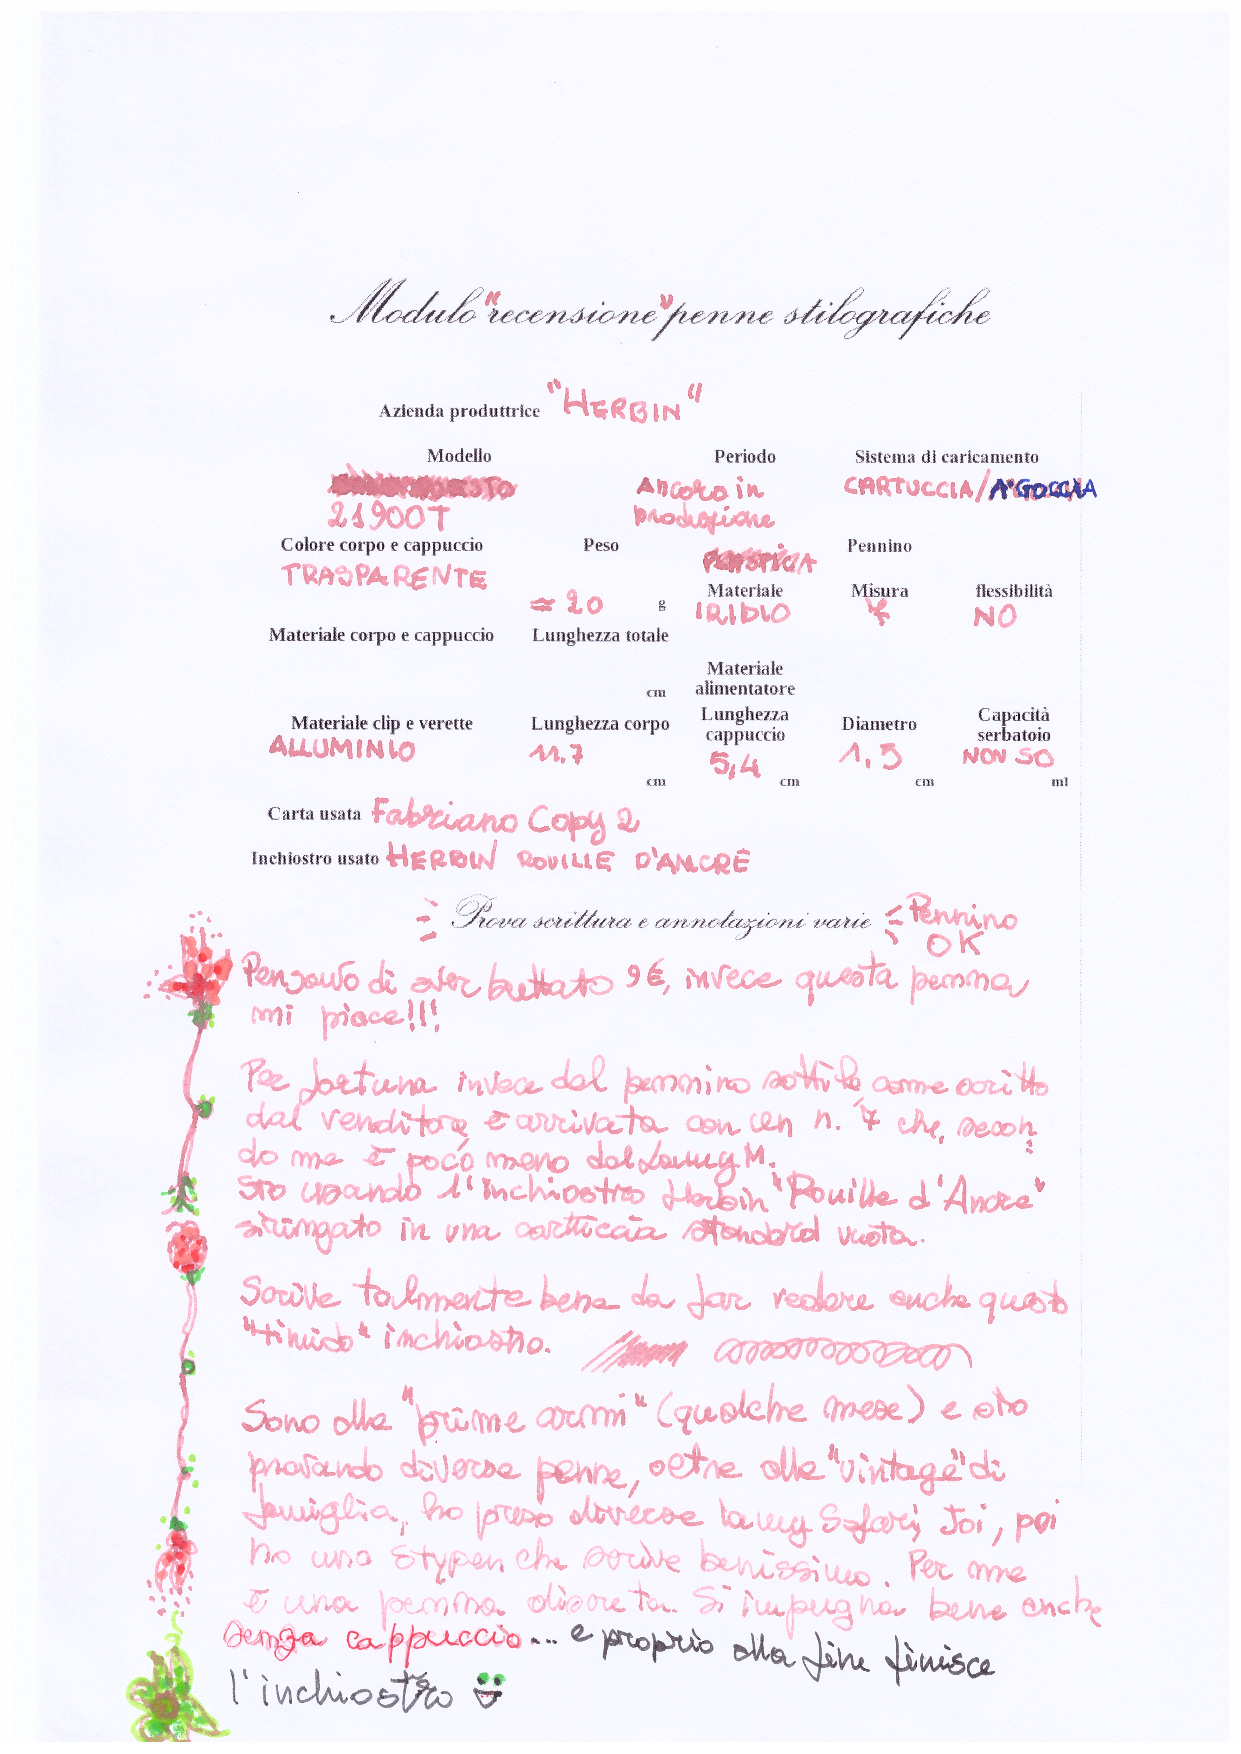 Modulo "recensione" penne stilografiche
Azienda produttrice "HERBIN"
Modello Periodo Sistema di caricamento
Ancora in CARTUCCIA/A GOCCIA
21900T produzione
Colore corpo e cappuccio Peso Pennino
TRASPARENTE
Materiale Misura flessibilità
≈ 20 g IRIDIO NO
Materiale corpo e cappuccio Lunghezza totale
Materiale
cm alimentatore
Materiale clip e verette Lunghezza corpo Lunghezza cappuccio Diametro Capacità serbatoio
ALLUMINIO 11,7 cm 5,4 cm 1,3 cm NON SO ml
Carta usata Fabriano Copy 2
Inchiostro usato HERBIN ROUILLE D'ANCRE
Prova scrittura e annotazioni varie Pennino
OK
Pensavo di aver buttato 9€, invece questa penna
mi piace!!!
Per fortuna invece del pennino sottile come scritto
dal venditore, è arrivata con un n. 4 che, secon
do me è poco meno del Lamy M.
Sto usando l'inchiostro Herbin "Rouille d'Ancre"
siringato in una cartuccia standard vuota.
Scrive talmente bene da far vedere anche questo
"timido" inchiostro.
Sono alle "prime armi" (qualche mese) e sto
provando diverse penne, oltre alle "vintage" di
famiglia, ho preso diverse Lamy Safari, Joi, poi
ho una Stypen che scrive benissimo. Per me
è una penna discreta. Si impugna bene anche
senza cappuccio... e proprio alla fine finisce
l'inchiostro